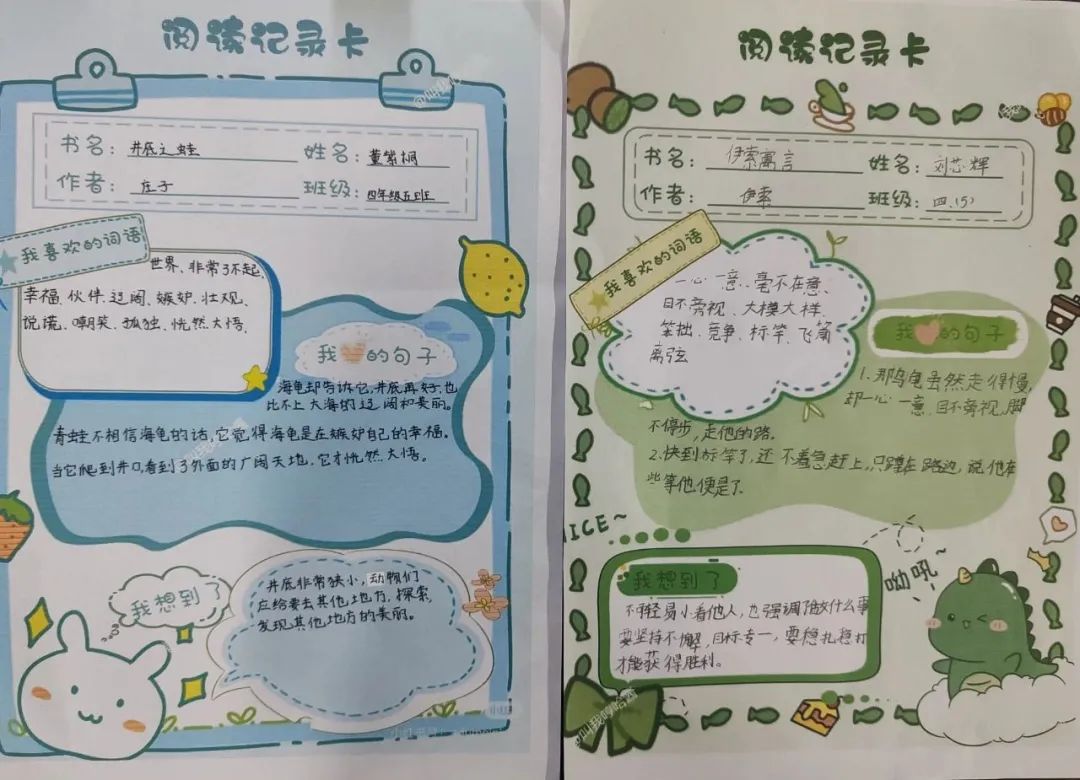 阅读记录卡
书名：井底之蛙
姓名：董紫桐
作者：庄子
班级：四年级五班
我喜欢的词语
世界、非常了不起、
幸福、伙伴、辽阔、嫉妒、壮观、
说谎、嘲笑、孤独、恍然大悟、
我的句子
海龟却告诉它，井底再好，也
比不上大海的辽阔和美丽。
青蛙不相信海龟的话，它觉得海龟是在嫉妒自己的幸福。
当它爬到井口，看到了外面的广阔天地，它才恍然大悟。
我想到了
井底非常狭小，动物们
应给要去其他地方，探索
发现其他地方的美丽。
阅读记录卡
书名：伊索寓言
姓名：刘芯辉
作者：伊索
班级：四（5）
我喜欢的词语
一心一意、毫不在意、
目不旁视、大模大样、
笨拙、竞争、标竿、飞箭
离弦
我的句子
1.那乌龟虽然走得慢，
却一心一意、目不旁视，脚
不停步，走他的路。
2.快到标竿了，还不着急赶上，只蹲在路边，说他在
些等他便是了
NICE~
我想到了
不可轻易小看他人，也强调了做什么事
要坚持不懈，目标专一，要稳扎稳打
才能获得胜利。
呦吼~